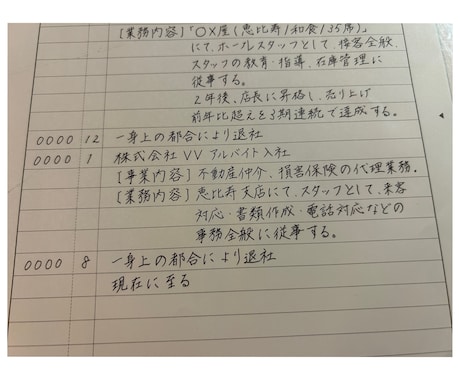 [業務内容]「〇×屋(恵比寿/和食/35席)」
にて、ホールスタッフとして、接客全般、
スタッフの教育・指導、在庫管理に
従事する。
2年後、店長に昇格し、売り上げ
前年比超えを3期連続で達成する。
0000 12 一身上の都合により退社
0000 1 株式会社VV アルバイト入社
[事業内容]不動産仲介、損害保険の代理業務。
[業務内容]恵比寿支店にて、スタッフとして、来客
対応・書類作成・電話対応などの
事務全般に従事する。
0000 8 一身上の都合により退社
現在に至る